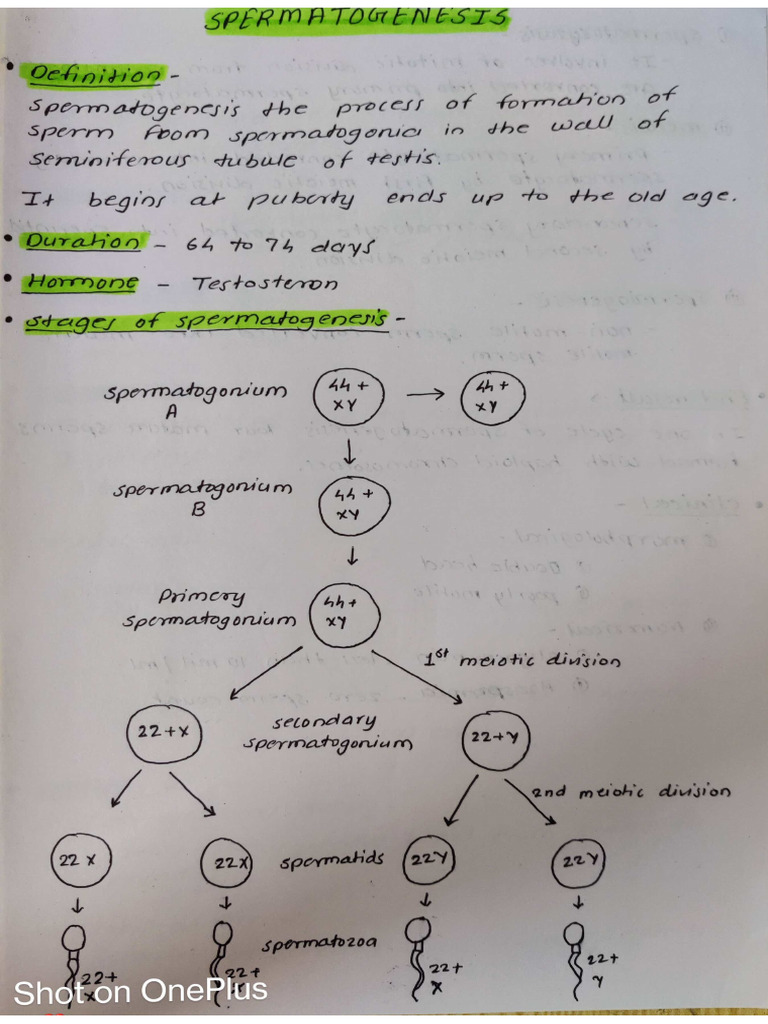 SPERMATOGENESIS
• Definition -
spermatogenesis the process of formation of
sperm from spermatogonia in the wall of
seminiferous tubule of testis.
It begins at puberty ends up to the old age.
• Duration - 64 to 74 days
• Hormone - Testosteron
• stages of spermatogenesis -
spermatogonium
A
44 +
XY
→
44 +
XY
spermatogonium
B
44 +
XY
Primery
spermatogonium
44+
XY
1st meiotic division
22+X
secondary
spermatogonium
22+Y
2nd meiotic division
22 X
22X
spermatids
22Y
22Y
spermatozoa
22+
X
22+
22+
X
22+
Y
Shot on OnePlus